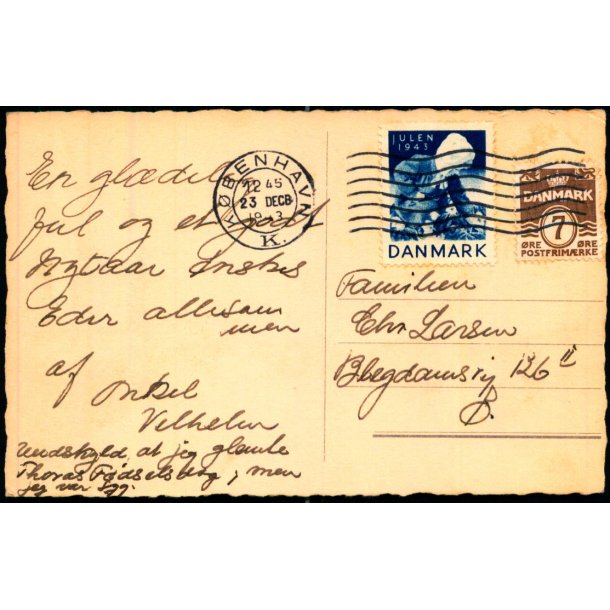 En glædelig
Jul og et godt
Nytaar ønskes
Eder allesam
men
af Onkel
Vilhelm
Undskyld at jeg glemte
Thoras Fødselsdag, men
jeg var syg.
KØBENHAVN
12 45
23 DECB
1943
K.
JULEN
1943
DANMARK
DANMARK
7
ØRE ØRE
POSTFRIMÆRKE
Familien
Chr Larsen
Blegdamsvej 126 II
Ø.